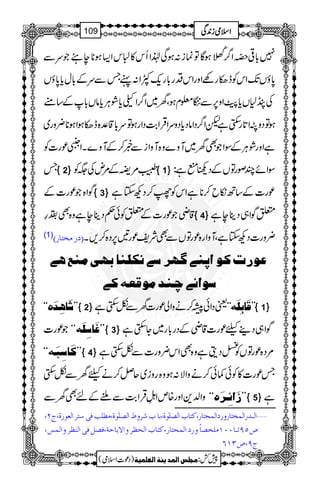 اسلامی زندگی
109
نہیں باقی حصہ اگر کھلا ہوگا تو نماز نہ ہوگی لہٰذا اُس کا لباس ایسا ہونا چاہیے جو سر سے
پاؤں تک اس کو ڈھکا رکھے اور اس قدر باریک کپڑا نہ پہنے جس سے سر کے بال یا پاؤں
کی پنڈلیاں یا پیٹ اوپر سے ننگا معلوم ہو، گھر میں اگر اکیلی یا شوہر یا ماں باپ کے سامنے
ہو تو دوپٹہ اتار سکتی ہے لیکن اگر داماد یا دوسرا قرابت دار ہو تو سر باقاعدہ ڈھکا ہوا ہونا ضروری
ہے اور شوہر کے سوا جو بھی گھر میں آوے وہ آواز سے خبر کر کے آوے۔ اجنبی عورت کو
سوائے چند صورتوں کے دیکھنا منع ہے: {1} طبیب مریضہ کے مرض کی جگہ کو {2} جس
عورت کے ساتھ نکاح کرنا ہے اس کو چھپ کر دیکھ سکتا ہے {3} گواہ جو عورت کے
متعلق گواہی دینا چاہے {4} قاضی جو عورت کے متعلق کوئی حکم دینا چاہے وہ بھی بقدر
ضرورت دیکھ سکتا ہے، آوارہ عورتوں سے بھی شریف عورتیں پردہ کریں۔ (در مختار)(۲)
عورت کو اپنے گھر سے نکلنا بھی منع ہے
سوائے چند موقعہ کے
{1} ”قَابِلَہ“ یعنی دائی پیشہ کرنے والی عورت گھر سے نکل سکتی ہے {2} ”شَاہِدَہ“
گواہی دینے کیلئے عورت قاضی کے دربار میں جاسکتی ہے {3} ”غَاسِلَہ“ جو عورت
مردہ عورتوں کو غسل دیتی ہے وہ بھی اس ضرورت سے نکل سکتی ہے {4} ”کَاسِبَہ“
جس عورت کا کوئی کمائی کرنے والا نہ ہو وہ روزی حاصل کرنے کیلئے گھر سے نکل سکتی
ہے {5} ”زَائِرَہ“ والدین اور خاص اہل قرابت سے ملنے کے لئے بھی گھر سے
الدرالمختاروردالمحتار، کتاب الصلوة، باب شروط الصلوة، مطلب فی ستر العورة، ج۲،
ص۹۵تا۱۰۰ ملخصاً ورد المحتار، کتاب الحظر والاباحة، فصل فی النظر والمس،
ج۹، ص۶۱۳
پیش کش: مجلس المدینة العلمیة (دعوت اسلامی)